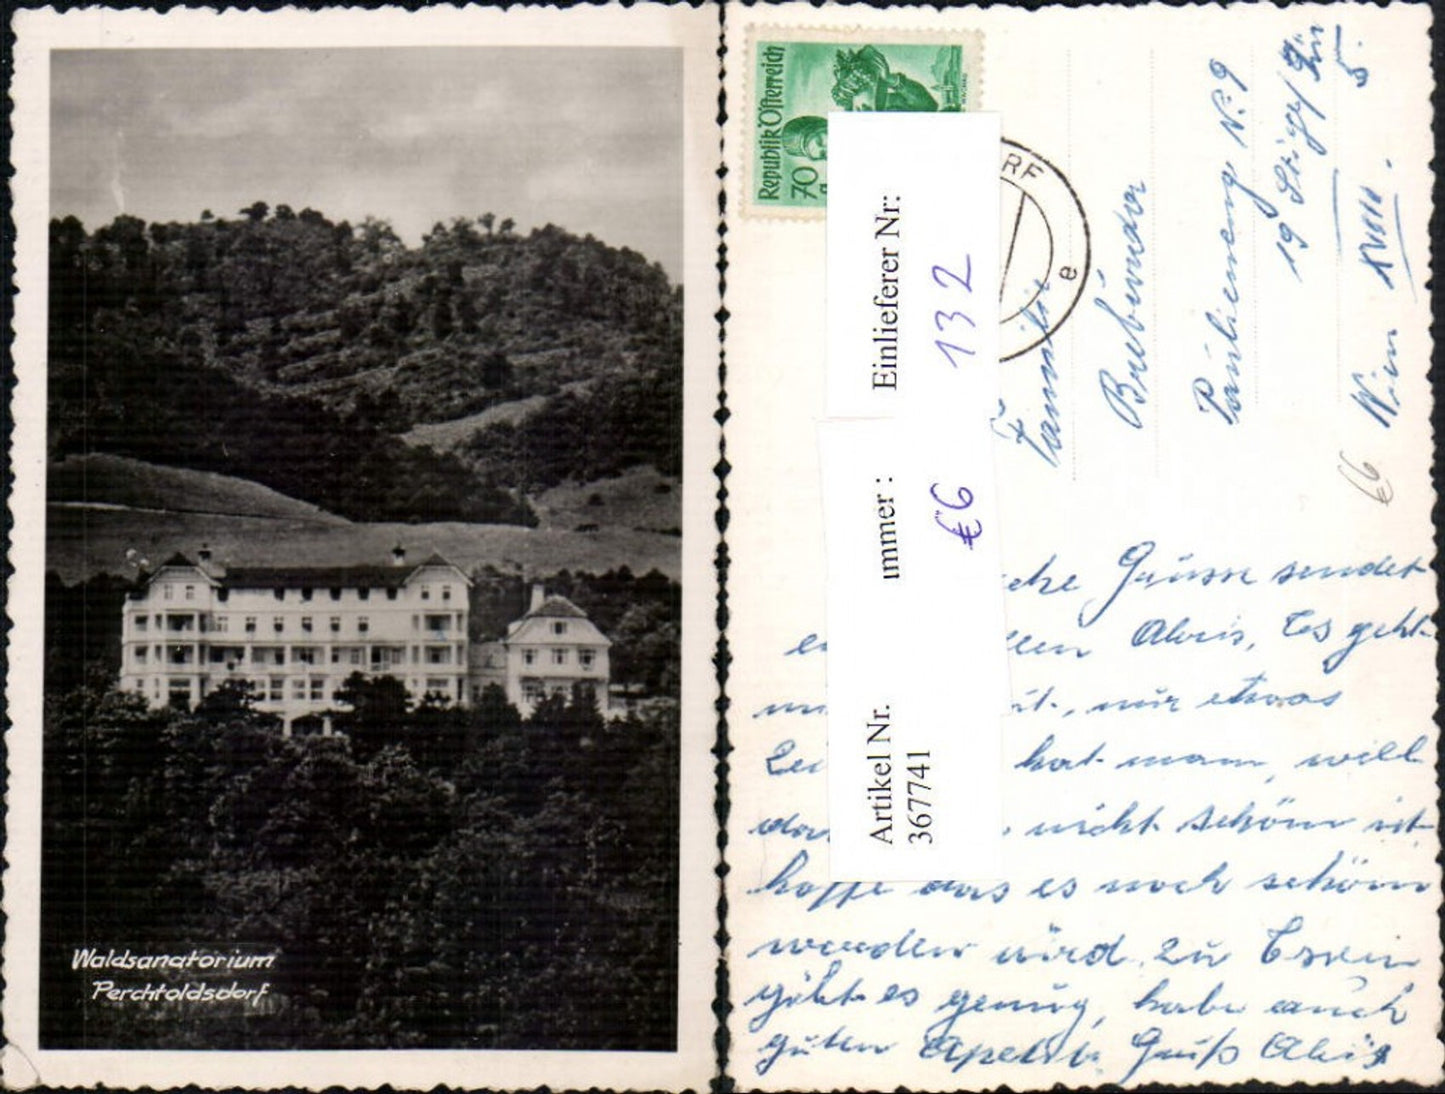 Waldsanatorium
Perchtoldsdorf
Republik Österreich
70
RF
e
Einlieferer Nr:
132
ummer :
€6
Artikel Nr.
367741
Familie
Paulinenweg N. 9
19
Wien XVIII.
€6
che Grüsse sendet
en llen Alois, Es geht
t, nur etwas
hat man, will
nicht schön ist
hoffe das es noch schön
werden wird. Zu Essen
giebt es genug, habe auch
guten Apetit. Gruß Alois